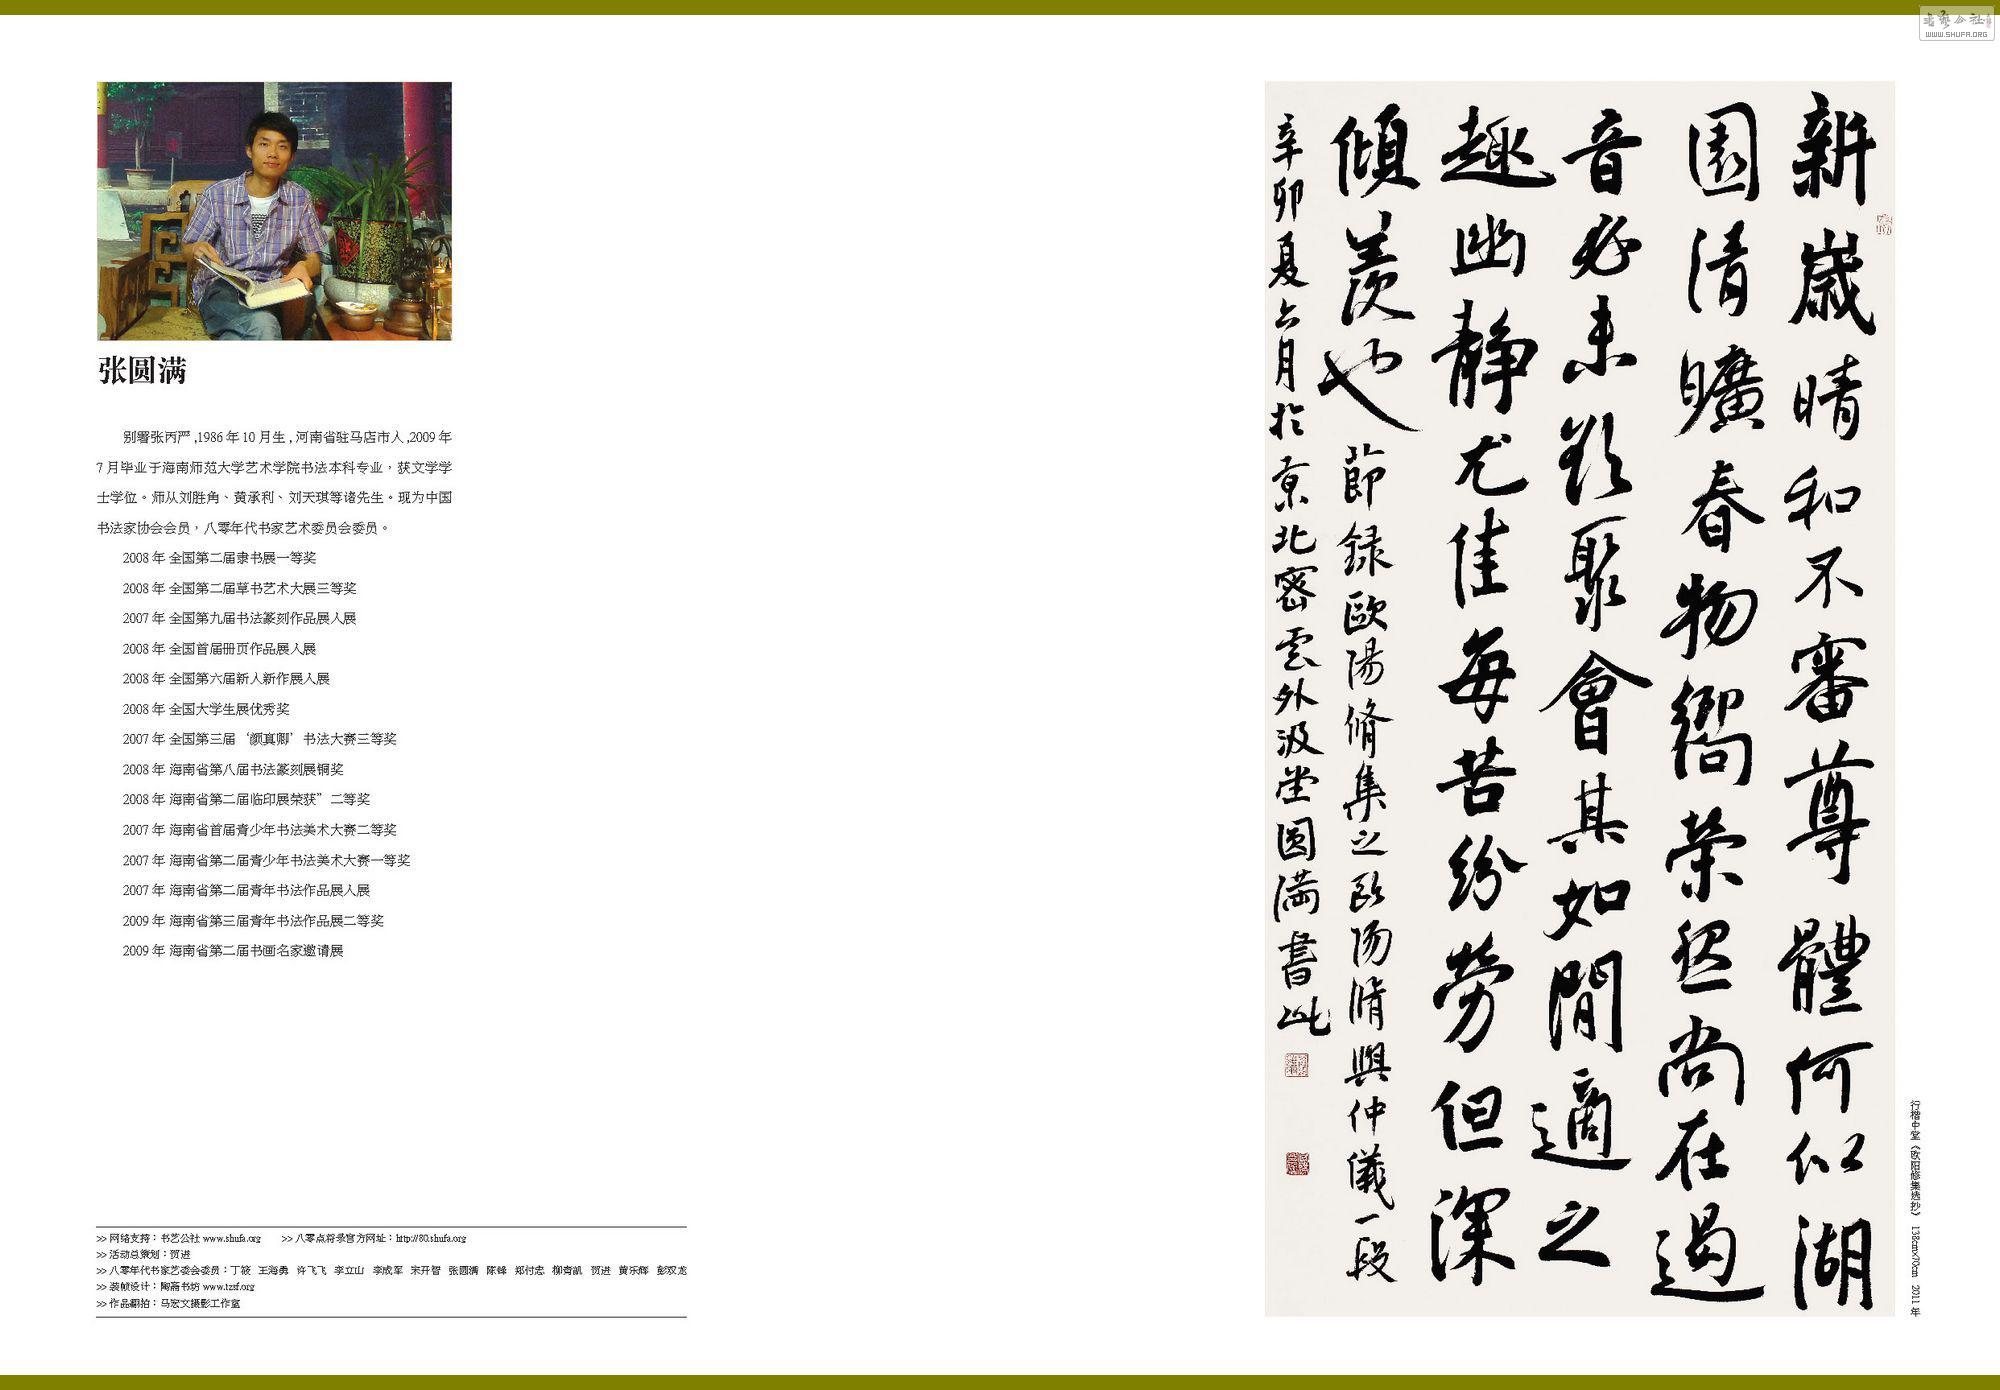 书艺公社
WWW.SHUFA.ORG
张圆满
别署张丙严,1986 年 10 月生,河南省驻马店市人,2009 年
7 月毕业于海南师范大学艺术学院书法本科专业，获文学学
士学位。师从刘胜角、黄承利、刘天琪等诸先生。现为中国
书法家协会会员，八零年代书家艺术委员会委员。
2008 年 全国第二届隶书展一等奖
2008 年 全国第二届草书艺术大展三等奖
2007 年 全国第九届书法篆刻作品展入展
2008 年 全国首届册页作品展入展
2008 年 全国第六届新人新作展入展
2008 年 全国大学生展优秀奖
2007 年 全国第三届‘颜真卿’书法大赛三等奖
2008 年 海南省第八届书法篆刻展铜奖
2008 年 海南省第二届临印展荣获”二等奖
2007 年 海南省首届青少年书法美术大赛二等奖
2007 年 海南省第二届青少年书法美术大赛一等奖
2007 年 海南省第二届青年书法作品展入展
2009 年 海南省第三届青年书法作品展二等奖
2009 年 海南省第二届书画名家邀请展
>> 网络支持：书艺公社 www.shufa.org >> 八零点将录官方网址：http://80.shufa.org
>> 活动总策划：贺进
>> 八零年代书家艺委会委员：丁筱 王海勇 许飞飞 李立山 李成军 宋开智 张圆满 陈锋 郑付忠 柳青凯 贺进 黄乐辉 彭双龙
>> 装帧设计：陶斋书坊 www.tzsf.org
>> 作品翻拍：马宏文摄影工作室
新歲晴和不審尊體何似湖
園清曠春物嚮榮恐尚在遏
音必未欲聚會其如閒適之
趣幽静尤佳每苦紛勞但深
傾羡也 節録歐陽脩集之歐陽脩與仲儀一段
辛卯夏六月於京北密雲外汲堂圆满書此
行楷中堂《欧阳修集选抄》 138cm×70cm 2011 年